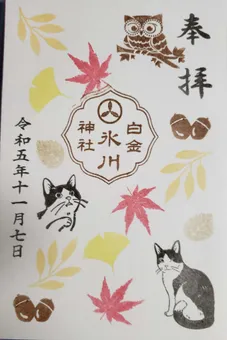 奉拝
白金
氷川
神社
令和五年十一月七日